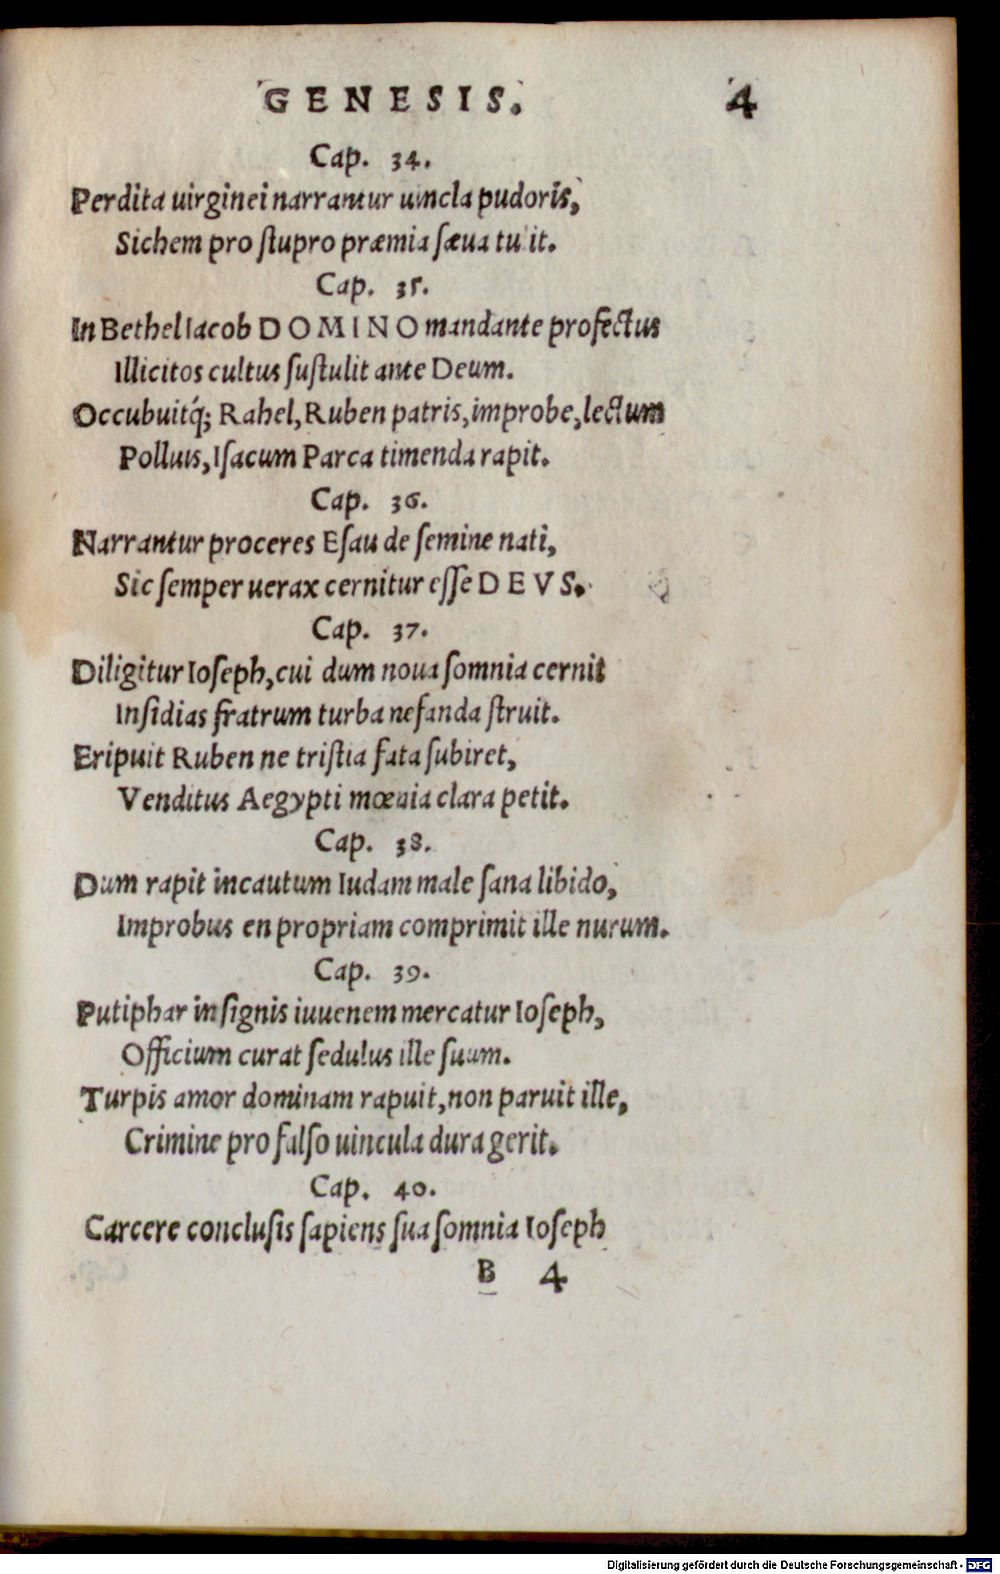 GENESIS. 4
Cap. 34.
Perdita uirginei narrantur uincla pudoris,
Sichem pro ſtupro præmia ſæua tulit.
Cap. 35.
In Bethel Iacob DOMINO mandante profectus
Illicitos cultus ſuſtulit ante Deum.
Occubuitq́; Rahel, Ruben patris, improbe, lectum
Polluis, Iſacum Parca timenda rapit.
Cap. 36.
Narrantur proceres Eſau de ſemine nati,
Sic ſemper uerax cernitur eſſe DEVS.
Cap. 37.
Diligitur Ioſeph, cui dum noua ſomnia cernit
Inſidias fratrum turba nefanda ſtruit.
Eripuit Ruben ne triſtia fata ſubiret,
Venditus Aegypti mœnia clara petit.
Cap. 38.
Dum rapit incautum Iudam male ſana libido,
Improbus en propriam comprimit ille nurum.
Cap. 39.
Putiphar inſignis iuuenem mercatur Ioſeph,
Officium curat ſedulus ille ſuum.
Turpis amor dominam rapuit, non paruit ille,
Crimine pro falſo uincula dura gerit.
Cap. 40.
Carcere concluſis ſapiens ſua ſomnia Ioſeph
B 4
Digitalisierung gefördert durch die Deutsche Forschungsgemeinschaft - DFG